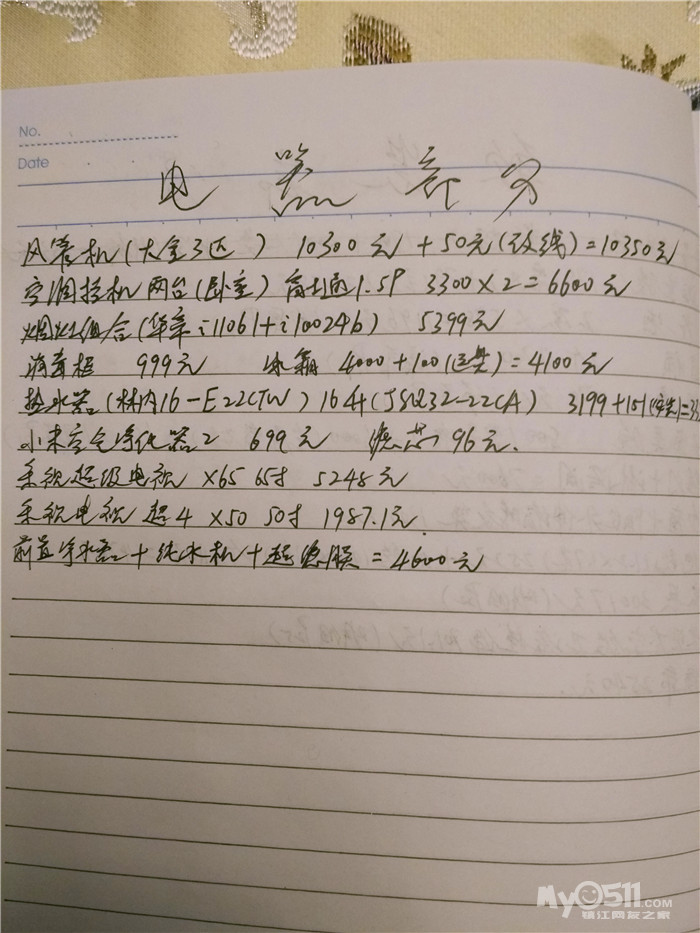 No.
Date
电器部分
风管机(大金3匹) 10300元+50元(改线)=10350元
空调挂机两台(卧室) 富士通1.5P 3300×2=6600元
烟灶组合(华帝i11061+i10024b) 5399元
消毒柜 999元 冰箱 4000+100(运费)=4100元
热水器(林内16-E22CTW)16升(JSQ32-22CA) 3199+151(安装)=33
小米空气净化器2 699元 滤芯 96元.
乐视超级电视 X65 65寸 5248元
乐视电视 超4 X50 50寸 1987.1元.
前置净水器+纯水机+超滤膜=4600元
My0511.COM
镇江网友之家